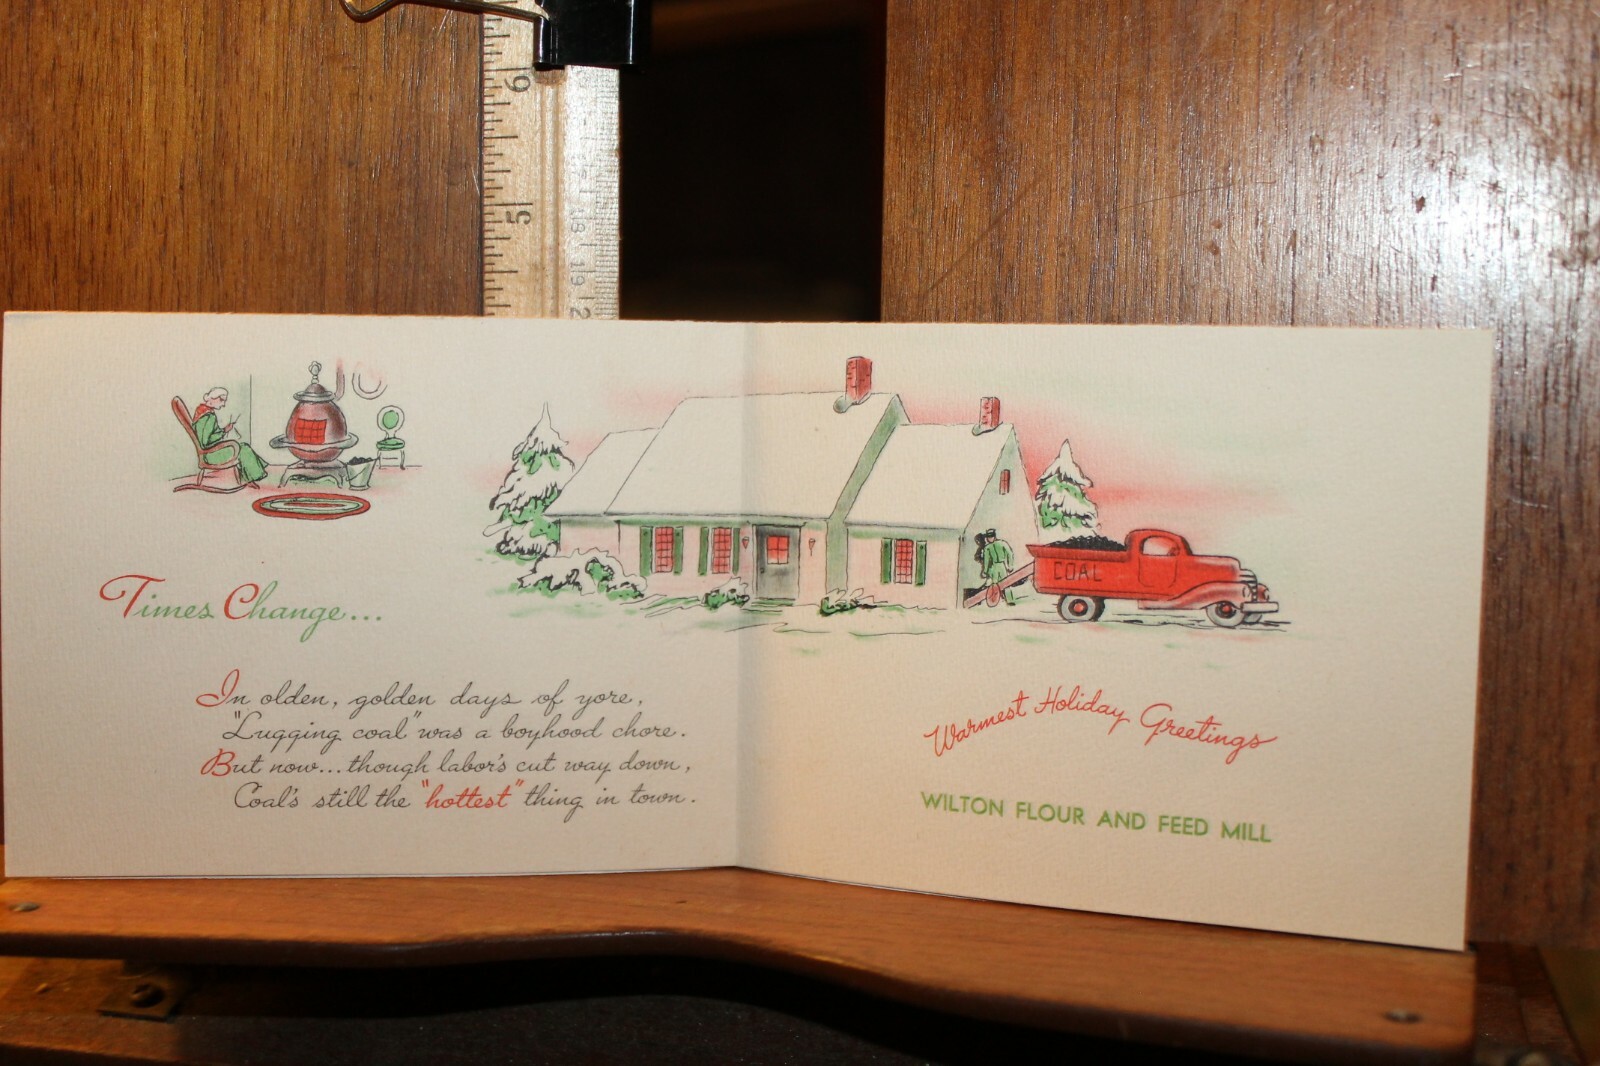 6
5
18
19
2
Times Change...
In olden, golden days of yore,
"Lugging coal" was a boyhood chore.
But now... though labor's cut way down,
Coal's still the "hottest" thing in town.
COAL
Warmest Holiday Greetings
WILTON FLOUR AND FEED MILL